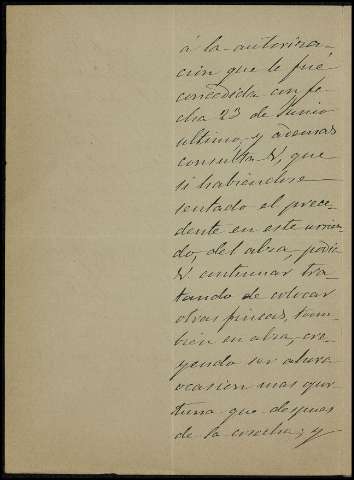 á la autoriza-
cion que le fué
concedida con fe-
cha 23 de Junio
ultimo, y ademas
consulta V, que
si habiendose
sentado el prece-
dente en este arrien-
do, del alza, podia
V. continuar tra-
tando de colocar
otras fincas, tam-
bien en alza, cre-
yendo ser ahora
ocasion mas opor-
tuna que despues
de la cosecha; y